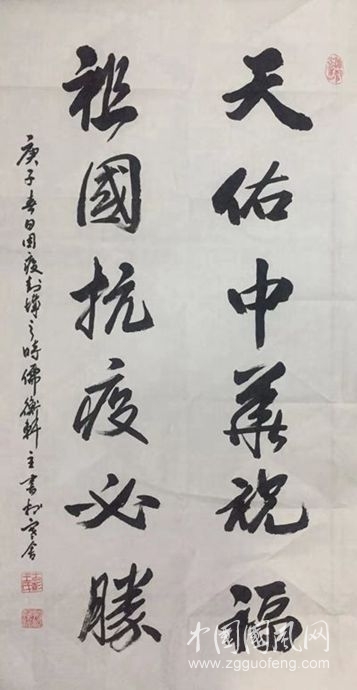 天佑中華祝福
祖國抗疫必勝
庚子春日因疫封城之時儒衡軒主書於寒舍
中国國风网
www.zgguofeng.com